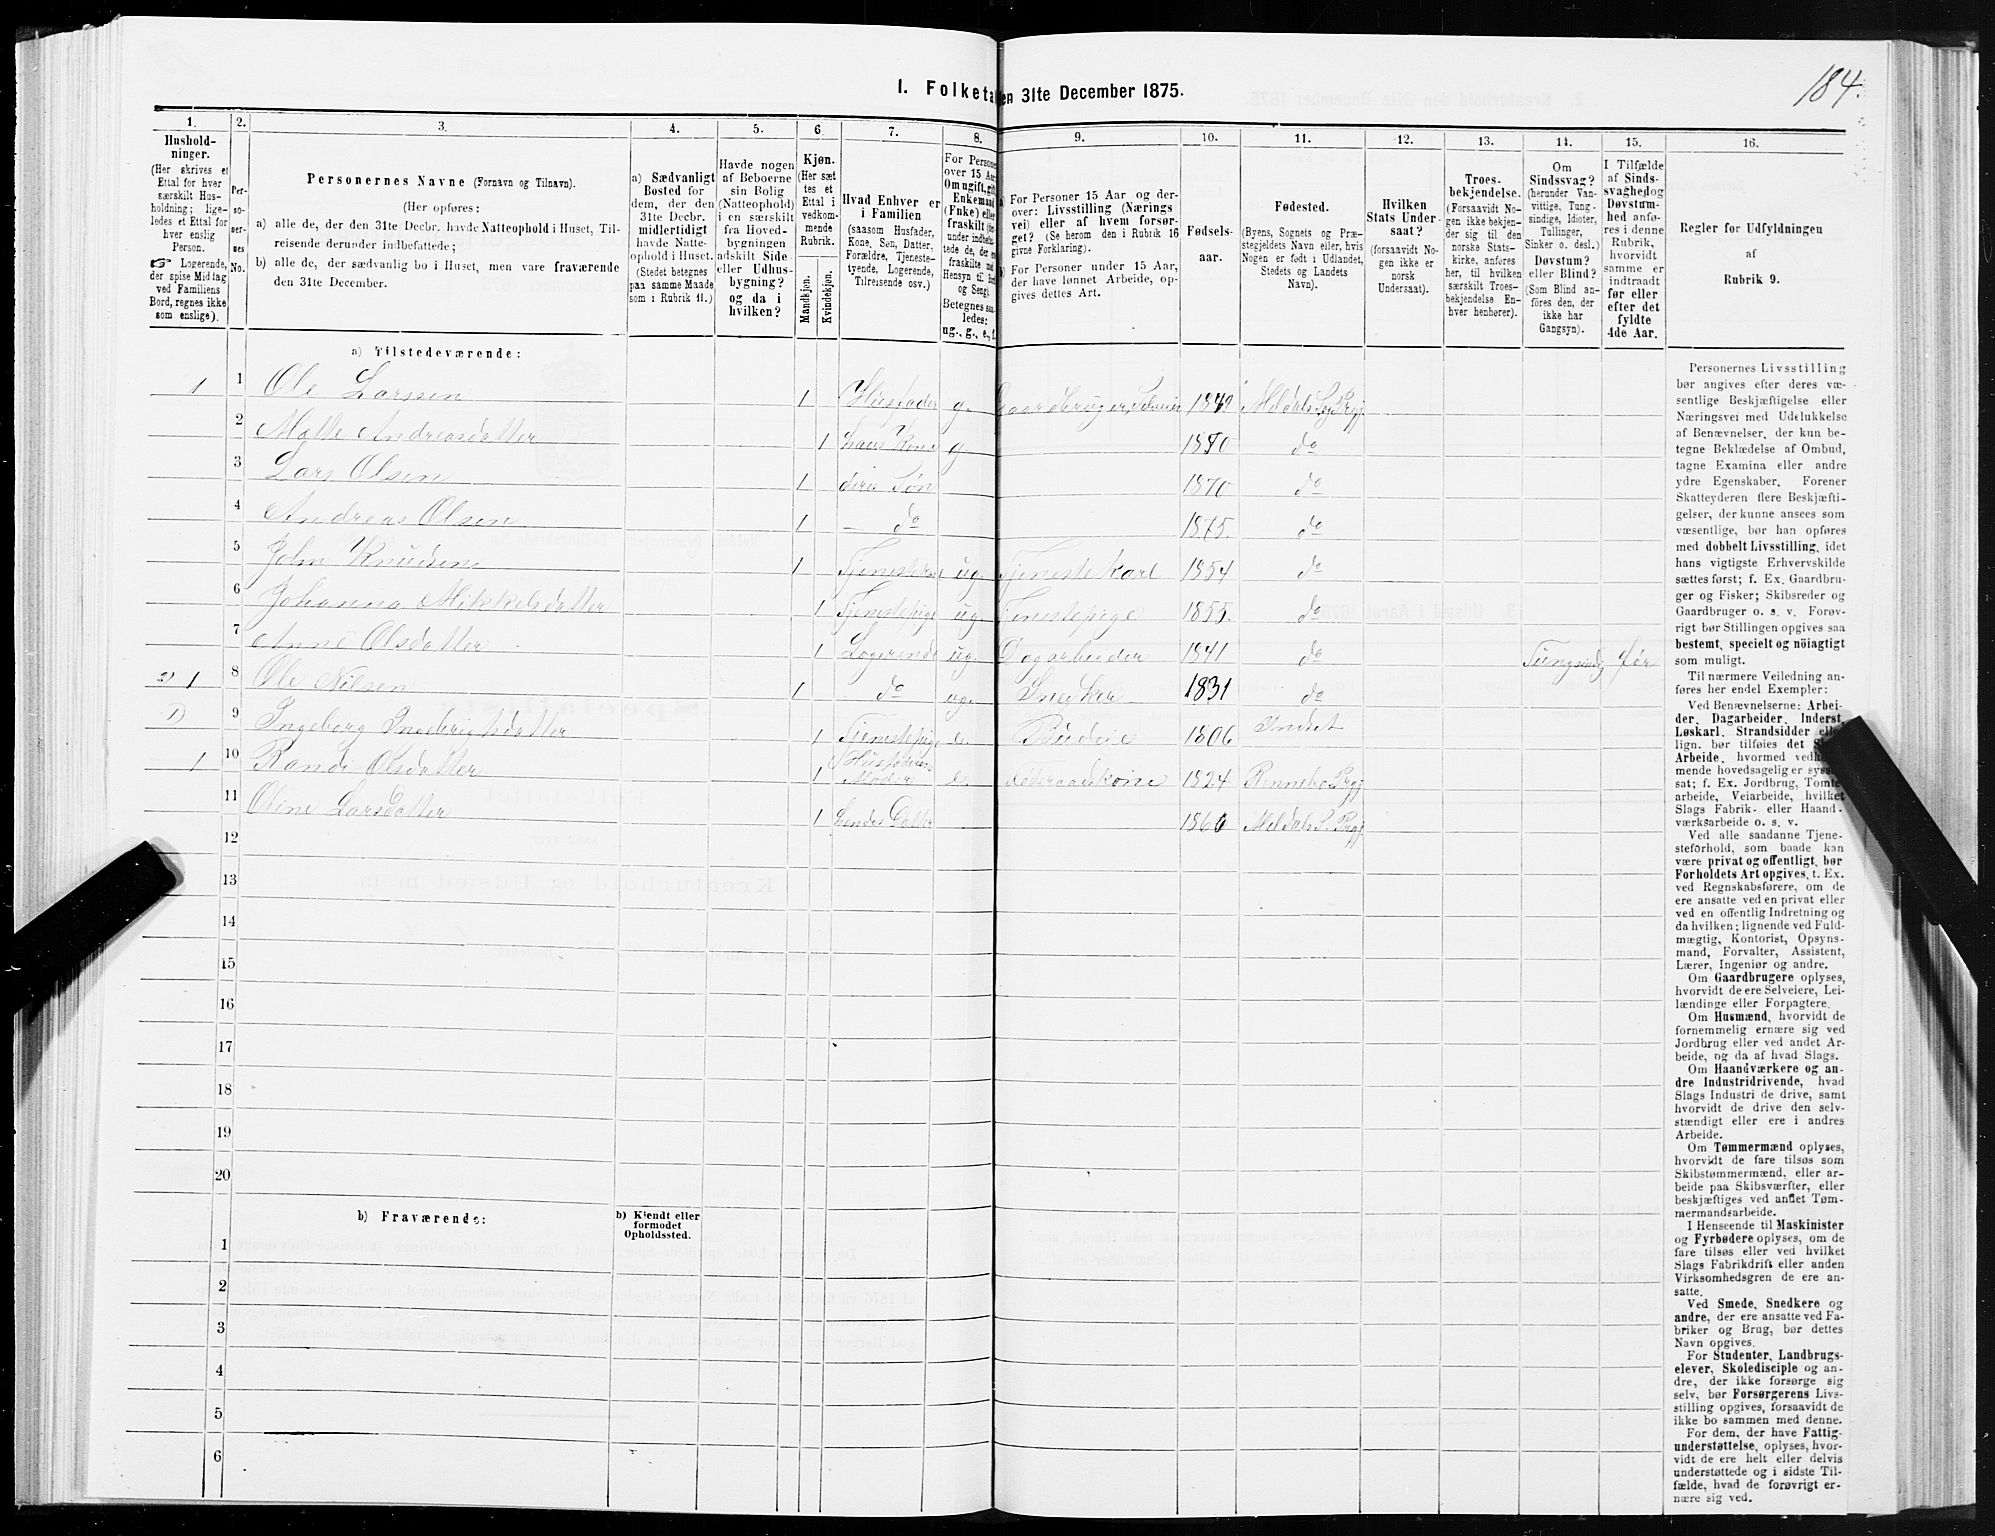 184.
I. Folketallet den 31te December 1875.
1. 2. 3. 4. 5. 6. 7. 8. 9. 10. 11. 12. 13. 14. 15. 16.
Hushold-
ninger.
(Her skrives et
Ettal for hver
særskilt Hus-
holdning; lige-
ledes et Ettal for
hver enslig
Person.
☞ Logerende,
der spise Middag
ved Familiens
Bord, regnes ikke
som enslige).
Per-
so-
ner-
nes
No.
Personernes Navne (Fornavn og Tilnavn).
(Her opføres:
a) alle de, der den 31te Decbr. havde Natteophold i Huset, Til-
reisende derunder indbefattede;
b) alle de, der sædvanlig bo i Huset, men vare fraværende
den 31te December.
a) Sædvanligt
Bosted for
dem, der den
31te Decbr.
midlertidigt
havde Natte-
ophold i Huset.
(Stedet betegnes
paa samme Maade
som i Rubrik 11.)
Havde nogen
af Beboerne
sin Bolig
(Natteophold)
i en særskilt
fra Hoved-
bygningen
adskilt Side-
eller Udhus-
bygning?
og da i
hvilken?
Kjøn.
(Her sæt
tes et
Ettal i
vedkom-
mende
Rubrik.
Mandkjøn.
Kvindekjøn.
Hvad Enhver er
i Familien
(saasom Husfader,
Kone, Søn, Datter,
Forældre, Tjeneste-
tyende, Logerende,
Tilreisende osv.)
For Personer
over 15 Aar:
Om ugift, gift,
Enkemand
(Enke) eller
fraskilt
Betegnes saa-
ledes:
ug., g., e., f.
a) For Personer 15 Aar og der-
over: Livsstilling (Nærings
vei) eller af hvem forsør-
get? (Se herom den i Rubrik 16
givne Forklaring).
b) For Personer under 15 Aar,
der have lønnet Arbeide, op-
gives dettes Art.
Fødsels-
aar.
Fødested.
(Byens, Sognets og Præ-
stegjeldets Navn eller, hvis
Nogen er født i Udlandet,
Stedets og Landets
Navn).
Hvilken
Stats Under-
saat?
(forsaavidt No-
gen ikke er
norsk
Undersaat).
Troes-
bekjendelse.
(Forsaavidt No-
gen ikke bekjen-
der sig til den
norske Stats-
kirke, anføres
her, til hvilken
særskilt Troes-
bekjendelse En-
hver henhører).
Om
Sindssvag?
(herunder Van-
vittige, Tung-
sindige, Idioter,
Tullinger,
Sinker o. desl.)
Døvstum?
eller Blind?
(Som Blind an-
føres den, der
ikke har
Gangsyn).
I Tilfælde
af Sinds-
svaghed og
Døvstum-
hed anfø-
res i denne
Rubrik,
hvorvidt
samme er
indtraadt
før eller
efter det
fyldte
4de Aar.
Regler for Udfyldningen
af
Rubrik 9.
a) Tilstedeværende:
1 1 Ole Larssen 1 Husfader g. Gaardbruger, Selveier 1849 Meldals S. og Prgj
2 Malle Andreasdatter 1 hans Kone g 1850 do
3 Lars Olsen 1 deres Søn 1870 do
4 Andreas Olsen 1 — do 1875. do
5 John Knudsen 1 Tjenestekarl ug. Tjenestekarl 1854 do
6 Johanna Mikkelsdatter 1 Tjenestepige ug. Tjenestepige 1855. do
7 Anne Olsdatter 1 Logerende ug. Dagarbeider 1841 do Tungsindig før
2) 1 8 Ole Nilsen 1 do ug. Snedker 1831 do
1) 9 Ingeborg Ingebrigtsdatter 1 Tjenestepige e. Budeie 1806 Indset
1 10 Randi Olsdatter 1 Husfaderens Moder e. Føderaadskone 1824 Rennebo Prgj
11 Oline Larsdatter 1 hendes Datter 1860 Meldals S. Prgj
12
13
14
15
16
17
18
19
20
b) Fraværende:
b) Kjendt eller
formodet
Opholdssted.
1
2
3
4
5
6
Personernes Livsstilling
bør angives efter deres væ-
sentlige Beskjæftigelse eller
Næringsvei med Udelukkelse
af Benævnelser, der kun be-
tegne Beklædelse af Ombud,
tagne Examina eller andre
ydre Egenskaber. Forener
Skatteyderen flere Beskjæfti-
gelser, der kunne ansees som
væsentlige, bør han opføres
med dobbelt Livsstilling, idet
hans vigtigste Erhvervskilde
sættes først; f. Ex. Gaardbru-
ger og Fisker; Skibsreder og
Gaardbruger o. s. v. Forøv-
rigt bør Stillingen opgives saa
bestemt, specielt og nöiagtigt
som muligt.
Til nærmere Veiledning an-
føres her endel Exempler:
Ved Benævnelserne: Arbei-
der, Dagarbeider, Inderst,
Løskarl, Strandsidder eller
lign. bør tilføies det Slags
Arbeide, hvormed vedkom-
mende hovedsagelig er syssel-
sat; f. Ex. Jordbrug, Tomte-
arbeide, Veiarbeide, hvilket
Slags Fabrik- eller Haand-
værksarbeide o. s. v.
Ved alle saadanne Tjene-
steforhold, som baade kan
være privat og offentligt, bør
Forholdets Art opgives, t. Ex.
ved Regnskabsførere, om de
ere ansatte ved en privat eller
ved en offentlig Indretning og
da hvilken; lignende ved Fuld-
mægtig, Kontorist, Opsyns-
mand, Forvalter, Assistent,
Lærer, Ingeniør og andre.
Om Gaardbrugere oplyses,
hvorvidt de ere Selveiere, Lei-
lændinge eller Forpagtere.
Om Husmænd, hvorvidt de
fornemmelig ernære sig ved
Jordbrug eller ved andet Ar-
beide, og da af hvad Slags.
Om Haandværkere og an-
dre Industridrivende, hvad
Slags Industri de drive, samt
hvorvidt de drive den selv-
stændigt eller ere i andres
Arbeide.
Om Tømmermænd oplyses,
hvorvidt de fare tilsøs som
Skibstømmermænd, eller ar-
beide paa Skibsværfter, eller
beskjæftiges ved andet Tøm-
mermandsarbeide.
I Henseende til Maskinister
og Fyrbødere oplyses, om de
fare tilsøs eller ved hvilket
Slags Fabrikdrift eller anden
Virksomhedsgren de ere an-
satte.
Ved Smede, Snedkere og
andre, der ere ansatte ved Fa-
briker og Brug, bør dettes
Navn opgives.
For Studenter, Landbrugs-
elever, Skoledisciple og an-
dre, der ikke forsørge sig
selv, bør Forsørgerens Livs-
stilling opgives, forsaavidt de
ikke bo sammen med denne.
For dem, der have Fattig-
understøttelse, oplyses, hvor-
vidt de ere helt eller delvis
understøttede og i sidste Til-
fælde, hvad de forøvrigt er-
nære sig ved.